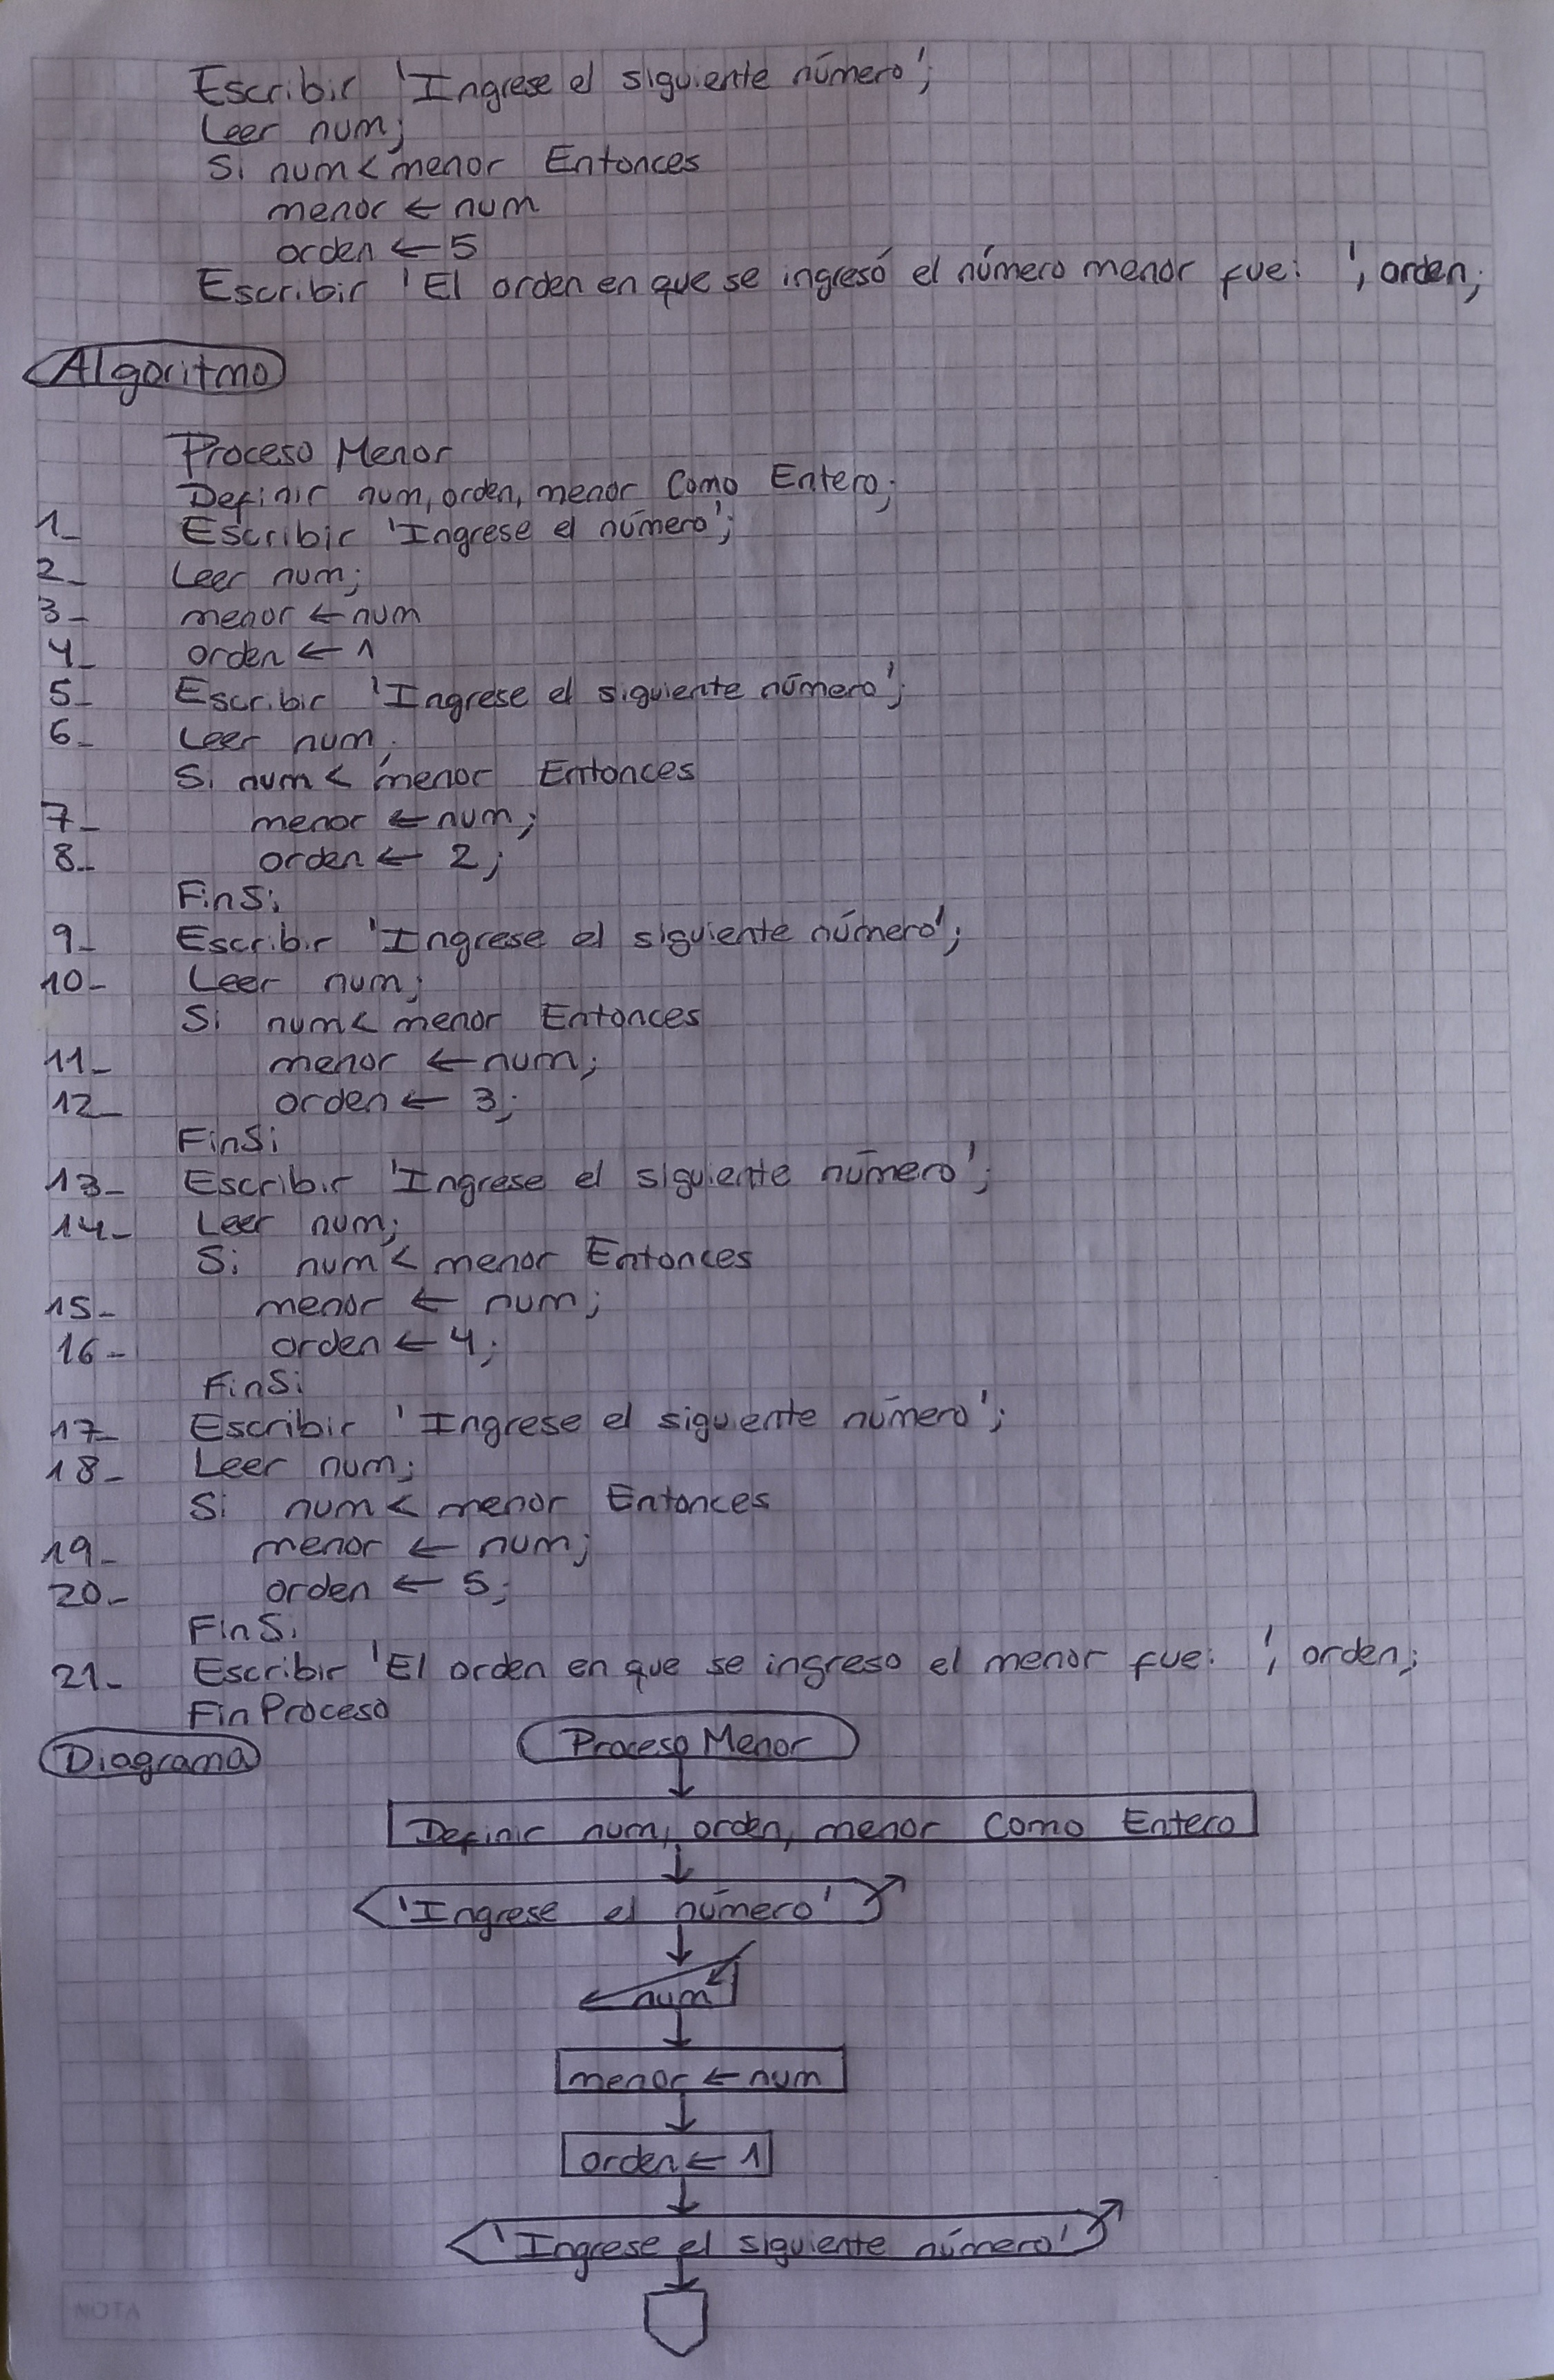 Escribir 'Ingrese el siguiente número';
Leer num;
Si num < menor Entonces
menor ← num
orden ← 5
Escribir 'El orden en que se ingresó el número menor fue: ', orden;
Algoritmo
Proceso Menor
Definir num, orden, menor Como Entero;
1_ Escribir 'Ingrese el número';
2_ Leer num;
3_ menor ← num
4_ orden ← 1
5_ Escribir 'Ingrese el siguiente número';
6_ Leer num;
Si num < menor Entonces
7_ menor ← num;
8_ orden ← 2;
FinSi
9_ Escribir 'Ingrese el siguiente número';
10_ Leer num;
Si num < menor Entonces
11_ menor ← num;
12_ orden ← 3;
FinSi
13_ Escribir 'Ingrese el siguiente número';
14_ Leer num;
Si num < menor Entonces
15_ menor ← num;
16_ orden ← 4;
FinSi
17_ Escribir 'Ingrese el siguiente número';
18_ Leer num;
Si num < menor Entonces
19_ menor ← num;
20_ orden ← 5;
FinSi
21_ Escribir 'El orden en que se ingreso el menor fue: ', orden;
FinProceso
Diagrama
Proceso Menor
Definir num, orden, menor Como Entero
'Ingrese el número'
num
menor ← num
orden ← 1
'Ingrese el siguiente número'
NOTA